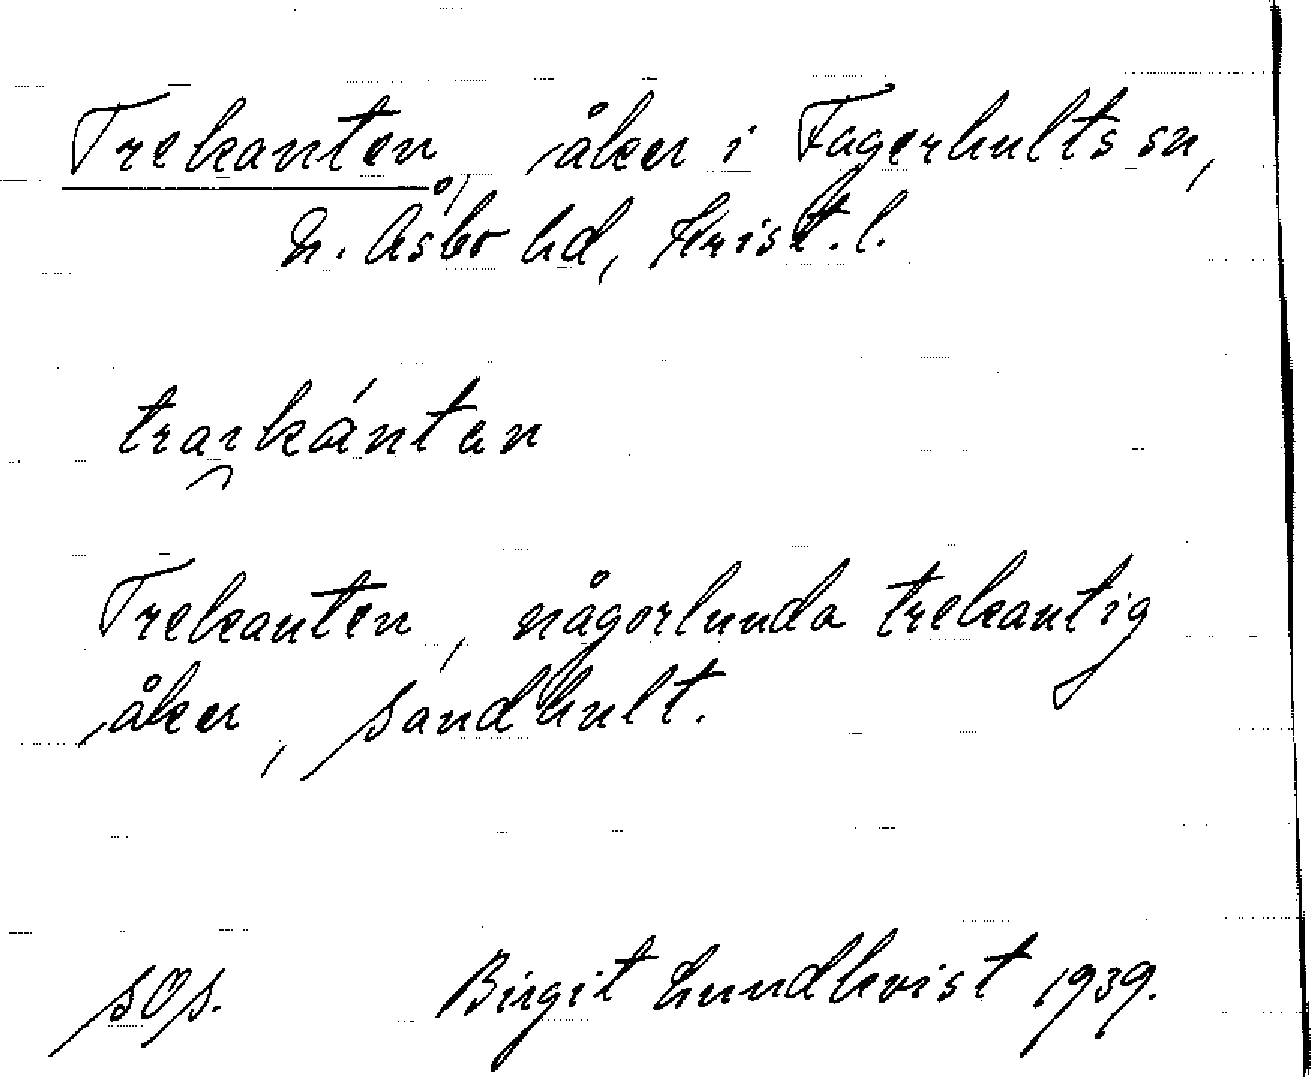 Trekanten, åker i Fagerhults sn,
N. Åsbo hd, Krist. l.
trarkánten
Trekanten, någorlunda trekantig
åker, Sandhult.
Birgit Lundkvist 1939.